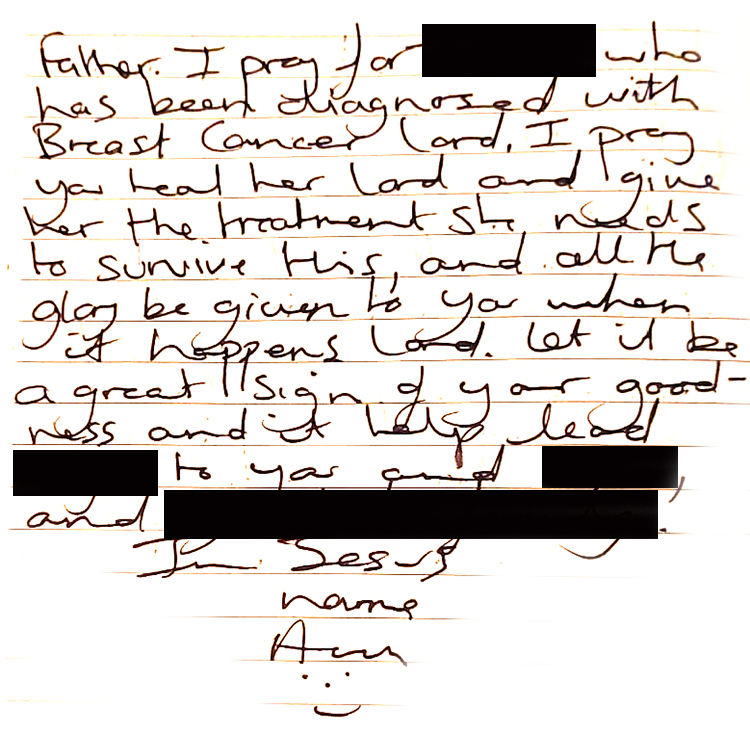 Father. I pray for who
has been diagnosed with
Breast Cancer Lord. I pray
you heal her Lord and give
her the treatment she needs
to survive this, and all the
glory be given to you when
it happens Lord. Let it be
a great sign of your good-
ness and it help lead
to you and
and
In Jesus
name
Amen